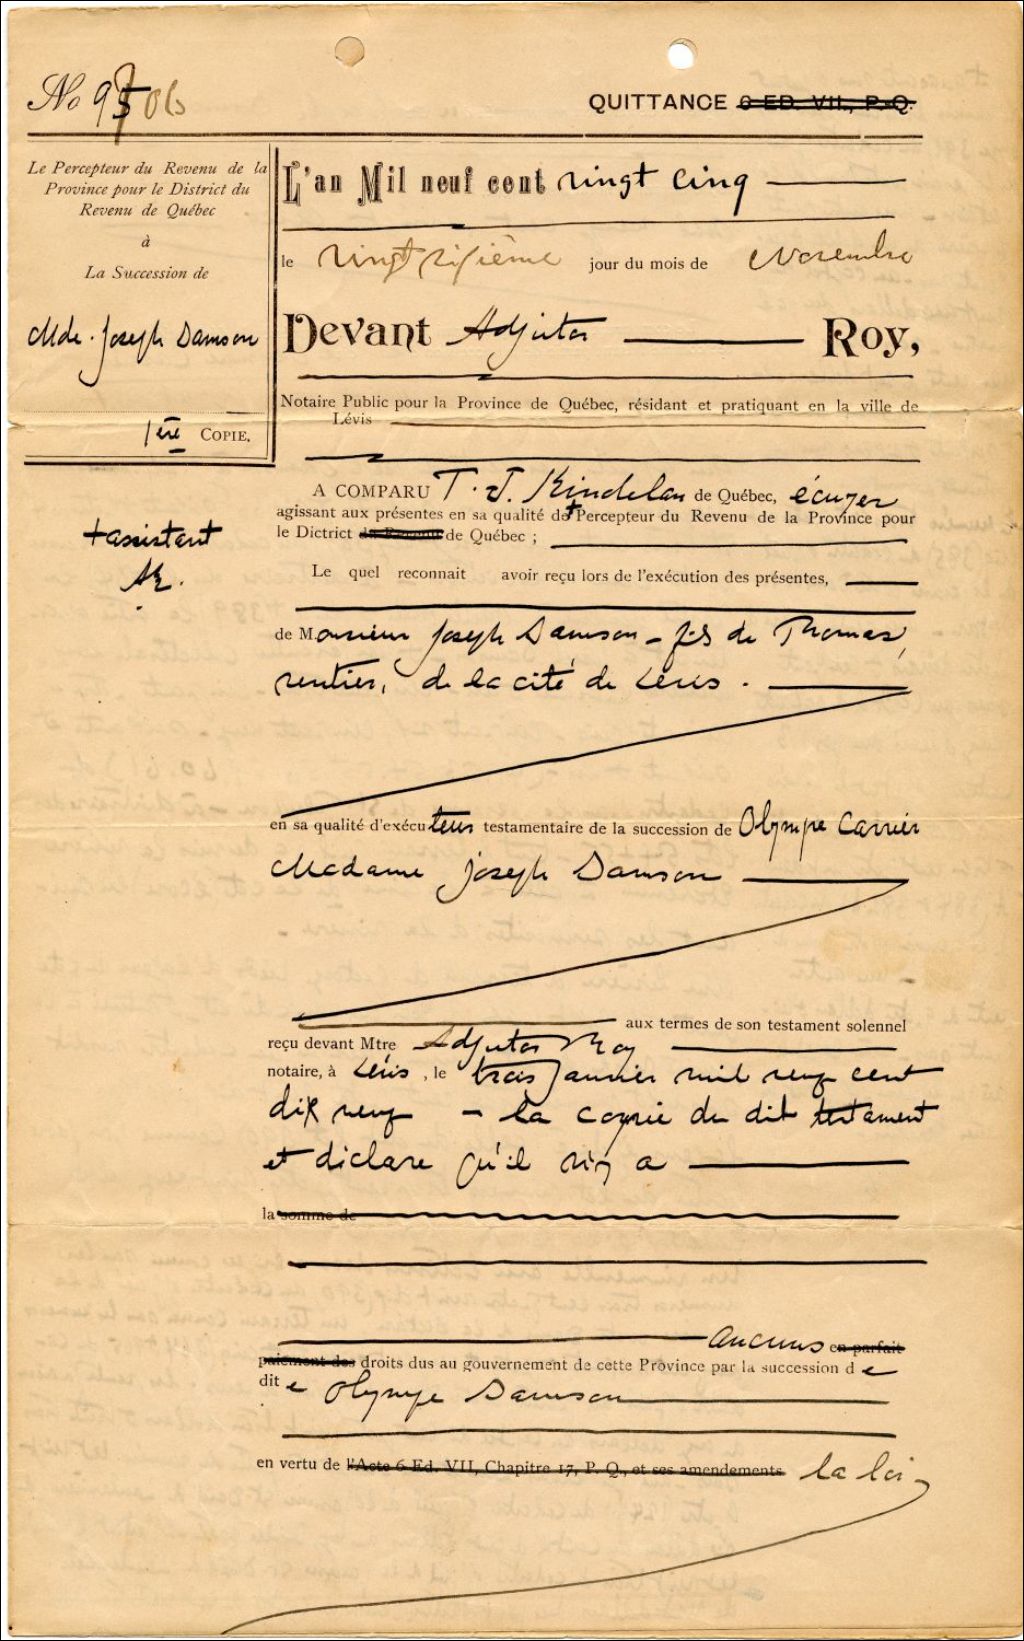 No 9706
QUITTANCE 6 ED. VII., P. Q.
Le Percepteur du Revenu de la
Province pour le District du
Revenu de Québec
à
La Succession de
Mde. Joseph Damson
1ère COPIE,
+ assistant
AR.
L'an Mil neuf cent vingt cinq
le vingt sixième jour du mois de Novembre
Devant Adjutor Roy,
Notaire Public pour la Province de Québec, résidant et pratiquant en la ville de
Lévis
A COMPARU T. J. Kindelan de Québec, écuyer
agissant aux présentes en sa qualité de + Percepteur du Revenu de la Province pour
le Dictrict du Revenu de Québec ;
Le quel reconnait avoir reçu lors de l'exécution des présentes,
de Monsieur Joseph Damson - fils de Thomas,
rentier, de la cité de Lévis.
en sa qualité d'exécuteur testamentaire de la succession de Olympe Carrier
Madame Joseph Damson
aux termes de son testament solennel
reçu devant Mtre Adjutor Roy
notaire, à Lévis, le trois Janvier mil neuf cent
dix neuf - la copie du dit testament
et déclare qu'il n'y a
la somme de
aucuns en parfait
paiement des droits dus au gouvernement de cette Province par la succession de
dite Olympe Damson
en vertu de l'Acte 6 Ed. VII, Chapitre 17, P. Q., et ses amendements la loi